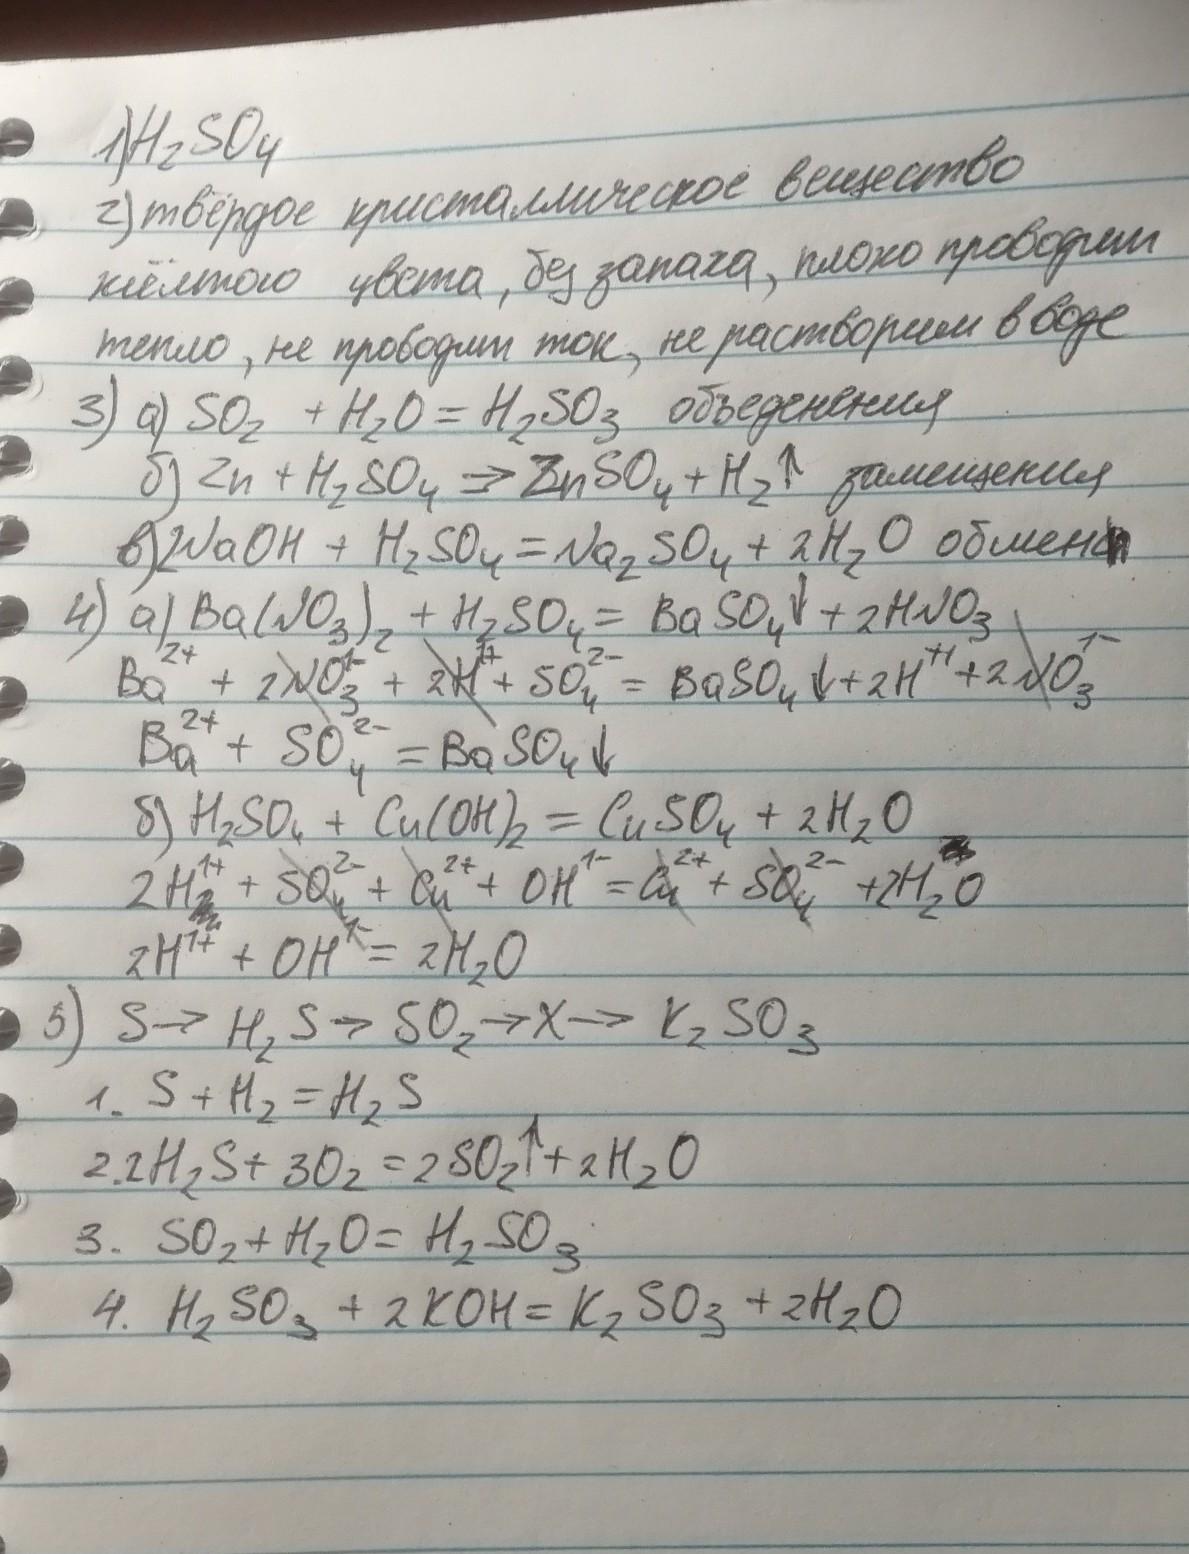 1) H₂SO₄
2) твёрдое кристаллическое вещество
жёлтого цвета, без запаха, плохо проводит
тепло, не проводит ток, не растворим в воде
3) а) SO₂ + H₂O = H₂SO₃ объеденения
б) Zn + H₂SO₄ → ZnSO₄ + H₂↑ замещения
в) 2NaOH + H₂SO₄ = Na₂SO₄ + 2H₂O обмен
4) а) Ba(NO₃)₂ + H₂SO₄ = BaSO₄↓ + 2HNO₃
Ba²⁺ + 2NO₃¹⁻ + 2H¹⁺ + SO₄²⁻ = BaSO₄↓ + 2H⁺¹ + 2NO₃¹⁻
Ba²⁺ + SO₄²⁻ = BaSO₄↓
б) H₂SO₄ + Cu(OH)₂ = CuSO₄ + 2H₂O
2H¹⁺ + SO₄²⁻ + Cu²⁺ + OH¹⁻ = Cu²⁺ + SO₄²⁻ + 2H₂O
2H¹⁺ + OH¹⁻ = 2H₂O
5) S → H₂S → SO₂ → X → K₂SO₃
1. S + H₂ = H₂S
2. 2H₂S + 3O₂ = 2SO₂↑ + 2H₂O
3. SO₂ + H₂O = H₂SO₃
4. H₂SO₃ + 2KOH = K₂SO₃ + 2H₂O